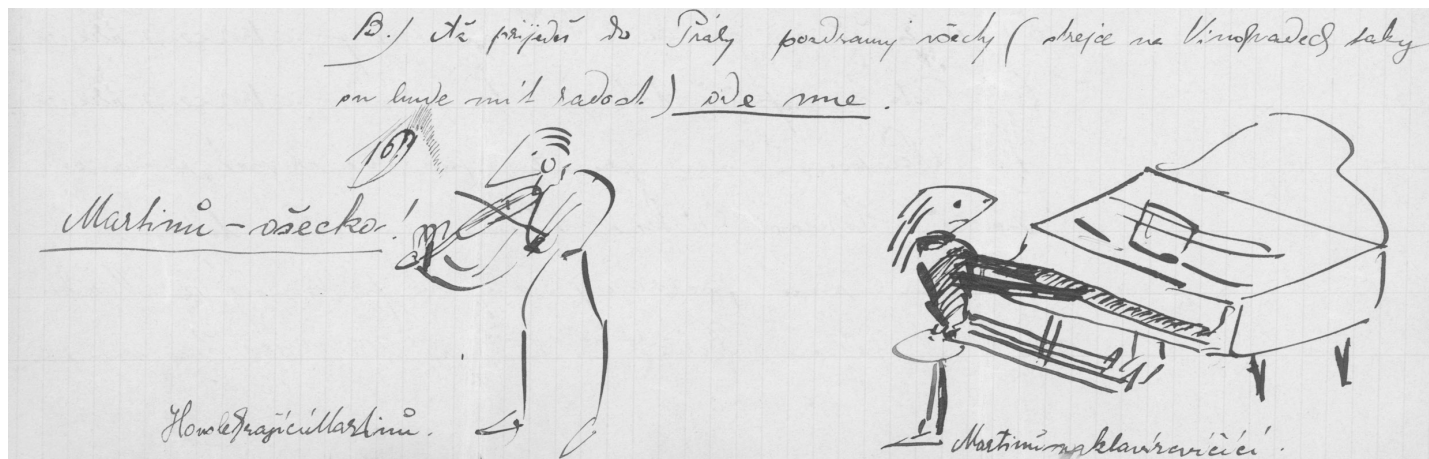 B.) Až přijedeš do Práhy pozdravuj všechy ( strejce na Vinohradech taky
on bude mít radost ) ode mne .
16.)
Martinů – všecko !
Housle hrajícíMartinů.
Martinů na klavír cvičící .